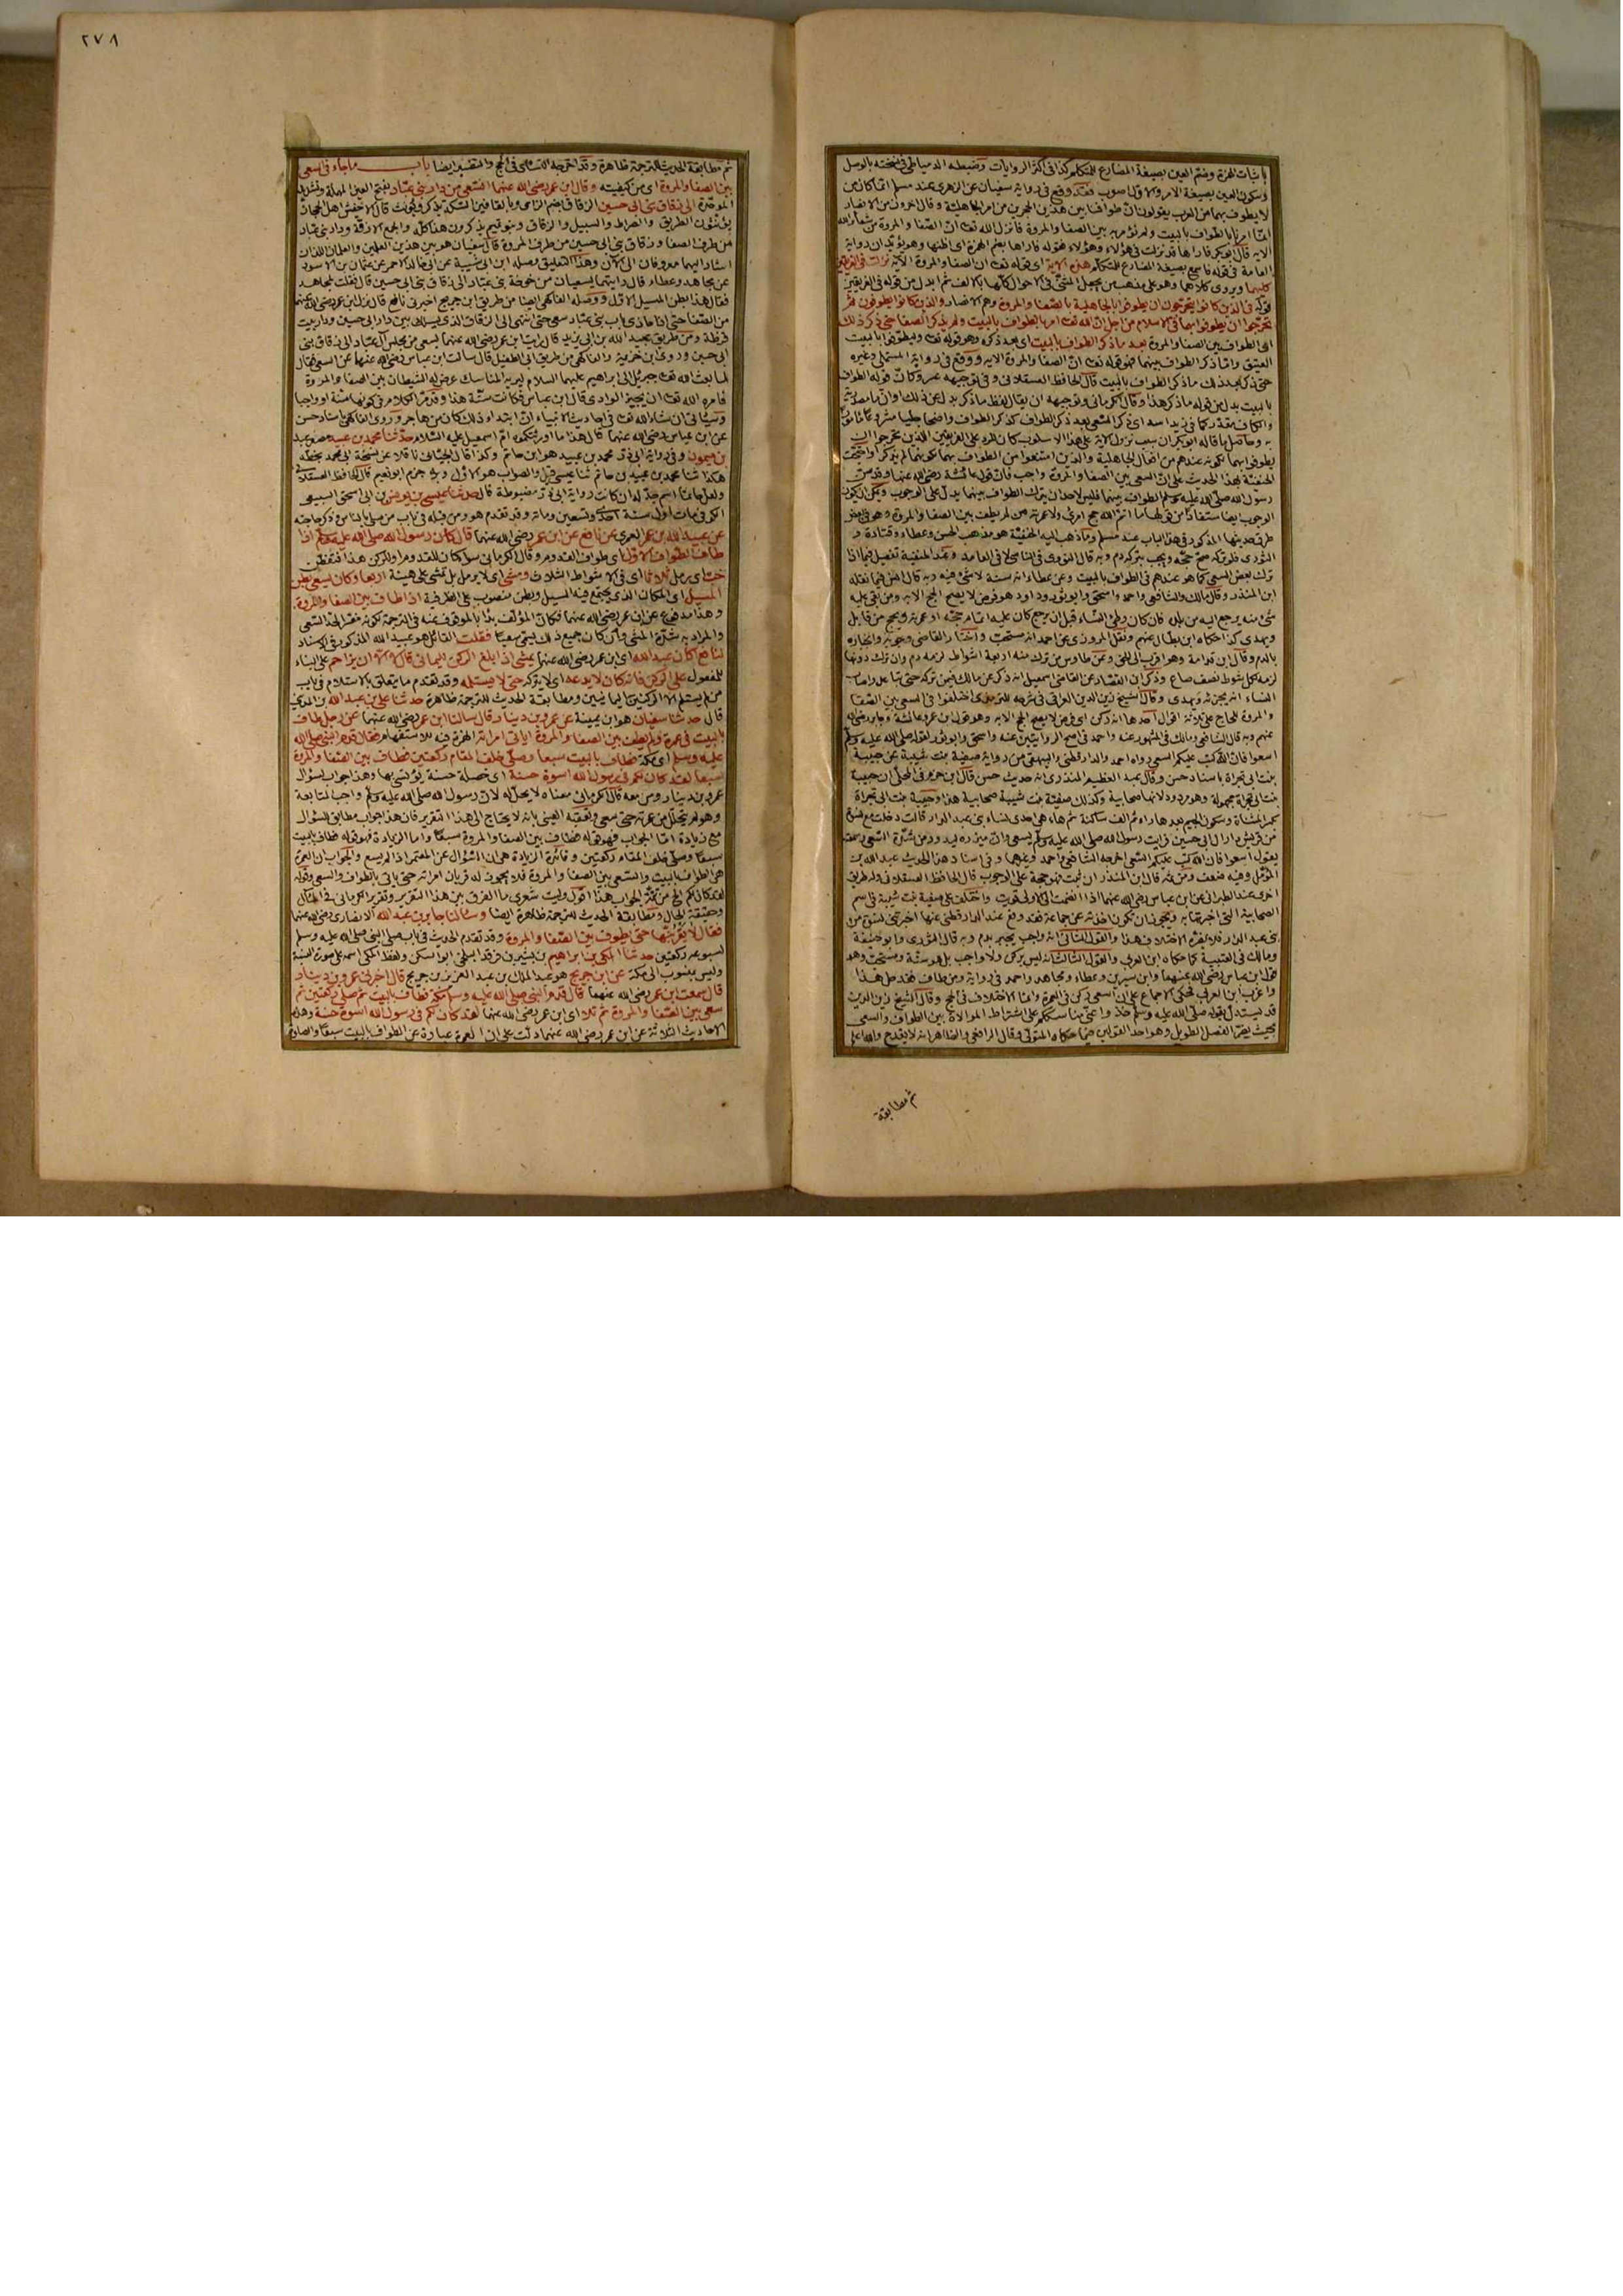 باثبات الهمزة وضم العين بصيغة المضارع للمتكلم كذا في اكثر الروايات وضبطه الدمياطي في نسخته بالوصل
وسكون العين بصيغة الامر والاول اصوب فقد وقع في رواية سفيان عن الزهري عند مسلم انما كان من
لا يطوف بهما من العرب يقولون ان طوافنا بين هذين الحجرين من امر الجاهلية وقال اخرون من الانصار
انما امرنا بالطواف بالبيت ولم نؤمر به بين الصفا والمروة فانزل الله تعالى ان الصفا والمروة من شعائر الله
الآية قال ابو بكر فاراها قد نزلت في هؤلاء وهؤلاء
العامة في قوله فاسمع بصيغة المضارع للمتكلم هذه الآية اي قوله تعالى ان الصفا والمروة الآية نزلت في الفريقين
كليهما ويروى كلاهما وهو على مذهب من يجعل المثنى في الاحوال كلها بالالف ثم ابدل من قوله في الفريقين
قوله في الذين كانوا يتحرجون ان يطوفوا بالجاهلية بالصفا والمروة وهم الانصار والذين كانوا يطوفون ثم
تحرجوا ان يطوفوا بهما في الاسلام من اجل ان الله تعالى امر بالطواف بالبيت ولم يذكر الصفا حتى ذكر ذلك
اي الطواف بين الصفا والمروة بعد ما ذكر الطواف بالبيت اي بعد ذكره وهو قوله تعالى وليطوفوا بالبيت
العتيق وانما ذكر الطواف بينهما فهو قوله تعالى ان الصفا والمروة الآية ووقع في رواية المستملي وغيره
حتى ذكر بعد ذلك ما ذكر الطواف بالبيت قال الحافظ العسقلاني وفي توجيهه عسر وكأن قوله الطواف
بالبيت بدل من قوله ما ذكر هذا وقال الكرماني وتوجيهه ان يقال لفظ ما ذكر بدل عن ذلك او ان ما مصدرية
والكاف مقدر كما في زيد اسد اي ذكر السعي بعد ذكر الطواف كذكر الطواف واضحا جليا مشروعا مأمورا
به وحاصل ما قاله ابو بكر ان سبب نزول الآية على هذا الاسلوب كان للرد على الفريقين الذين تحرجوا ان
يطوفوا بهما لكونه عندهم من افعال الجاهلية والذين امتنعوا من الطواف بهما لكونهما لم يذكرا واحتجت
الحنفية بهذا الحديث على ان السعي بين الصفا والمروة واجب فان قول عائشة رضي الله عنها وقد سن
رسول الله صلى الله عليه وسلم الطواف بينهما فليس لاحد ان يترك الطواف بينهما يدل على الوجوب ويمكن ان يكون
الوجوب ايضا مستفادا من قولها ما اتم الله حج امرئ ولا عمرته من لم يطف بين الصفا والمروة وهو في بعض
طرق حديثها المذكور في هذا الباب عند مسلم وما ذهب اليه الحنفية هو مذهب الحسن وعطاء وقتادة و
الثوري فلو تركه صح حجه ويجب بتركه دم وبه قال الثوري في الناسي لا في العامد وعند الحنفية تفصيل فيما اذا
ترك بعض السعي كما هو عندهم في الطواف بالبيت وعن عطاء انه سنة لا شئ فيه وبه قال انس فيما نقله
ابن المنذر وقال مالك والشافعي واحمد واسحق وابو ثور وداود هو فرض لا يصح الحج الا به ومن بقي عليه
شئ منه يرجع اليه من بلده فان كان وطئ النساء قبل ان يرجع كان عليه اتمام حجه او عمرته ويحج من قابل
ويهدي كذا حكاه ابن بطال عنهم ونقل المروزي عن احمد انه مستحب واختار القاضي وجوبه وانجباره
بالدم وقال ابن قدامة وهو اقرب الى الحق وعن طاوس من ترك منه اربعة اشواط لزمه دم وان ترك دونها
لزمه لكل شوط نصف صاع وذكر ابن القصار عن القاضي اسمعيل انه ذكر عن مالك فيمن تركه حتى تباعد واصاب
النساء انه يجزئه ويهدي وقال شيخ زين الدين العراقي في شرحه للترمذي اختلفوا في السعي بين الصفا
والمروة للحاج على ثلاثة اقوال احدها انه ركن اي فرض لا يصح الحج الا به وهو قول ابن عمر وعائشة وجابر رضي الله
عنهم وبه قال الشافعي ومالك في المشهور عنه واحمد في اصح الروايتين عنه واسحق وابو ثور لقوله صلى الله عليه وسلم
اسعوا فان الله كتب عليكم السعي رواه احمد والدارقطني والبيهقي من رواية صفية بنت شيبة عن حبيبة
بنت ابي تجراة باسناد حسن وقال عبد العظيم المنذري انه حديث حسن قال ابن حزم في المحلى ان حبيبة
بنت ابي تجراة مجهولة وهو مردود لانها صحابية وكذلك صفية بنت شيبة صحابية هذا وحبيبة بنت ابي تجراة
بكسر المثناة وسكون الجيم بعدها راء ثم الف ساكنة ثم هاء هي احدى نساء بني عبد الدار قالت دخلت مع نسوة
من قريش دار آل ابي حسين فرأيت رسول الله صلى الله عليه وسلم يسعى وان مئزره ليدور من شدة السعي وسمعته
يقول اسعوا فان الله كتب عليكم السعي اخرجه الشافعي واحمد وغيرهما وفي اسناد هذا الحديث عبد الله بن
المؤمل وفيه ضعف ومن ثمة قال ابن المنذر ان ثبت فهو حجة على الوجوب قال الحافظ العسقلاني وله طريق
اخرى عند الطبراني عن ابن عباس رضي الله عنهما اذا انضمت الى الاولى قويت واختلف على صفية بنت شيبة في اسم
الصحابية التي اخبرتها به ويجوز ان تكون اخذته عن جماعة فقد وقع عند الدارقطني عنها اخبرتني نسوة من
بني عبد الدار فلا يضره الاختلاف هذا والقول الثاني انه واجب يجبر بدم وبه قال الثوري وابو حنيفة
ومالك في العتبية كما حكاه ابن العربي والقول الثالث انه ليس بركن ولا واجب بل هو سنة ومستحب وهو
قول ابن عباس رضي الله عنهما وابن سيرين وعطاء ومجاهد واحمد في رواية ومن طاف فقد حل هذا
واغرب ابن العربي فحكى الاجماع على ان السعي ركن في العمرة وانما الاختلاف في الحج وقال الشيخ زين الدين
قد يستدل بقوله صلى الله عليه وسلم خذوا عني مناسككم على اشتراط الموالاة بين الطواف والسعي
بحيث يضر الفصل الطويل وهو احد القولين فيما حكاه المتولي وقال الرافعي والظاهر انه لا يقدح والله اعلم
ثم مطابقة
٢٧٨
ثم مطابقة الحديث للترجمة ظاهرة وقد اخرجه النسائي في الحج والتفسير ايضا باب ما جاء في السعي
بين الصفا والمروة اي من كيفيته وقال ابن عمر رضي الله عنهما السعي من دار بني عباد بفتح العين المهملة وتشديد
الموحدة الى زقاق بني ابي حسين الزقاق بضم الزاي وبالقافين السكة يذكر ويؤنث قال الاخفش اهل الحجاز
يؤنثون الطريق والصراط والسبيل والزقاق وبنو تميم يذكرون هذا كله والجمع الازقة ودار بني عباد
من طرف الصفا وزقاق بني ابي حسين من طرف المروة قال سفيان هو بين هذين العلمين والعلمان اللذان
اشار اليهما معروفان الى الآن وهذا التعليق وصله ابن ابي شيبة عن ابي خالد الاحمر عن عثمان بن الاسود
عن مجاهد وعطاء قال رأيتهما يسعيان من خوخة بني عباد الى زقاق بني ابي حسين قال فقلت لمجاهد
فقال هذا بطن المسيل الاول ووصله الفاكهي ايضا من طريق ابن جريج اخبرني نافع قال نزل ابن عمر رضي الله عنهما
من الصفا حتى اذا حاذى باب بني عباد سعى حتى انتهى الى الزقاق الذي يسلك بين دار ابي حسين ودار بنت
قرظة ومن طريق عبيد الله بن ابي يزيد قال رأيت ابن عمر رضي الله عنهما يسعى من مجلس آل عباد الى زقاق بني
ابي حسين وروى ابن خزيمة والفاكهي من طريق ابي الطفيل قال سألت ابن عباس رضي الله عنهما عن السعي فقال
لما بعث الله تعالى جبريل الى ابراهيم عليهما السلام ليريه المناسك عرض له الشيطان بين الصفا والمروة
فامره الله تعالى ان يجيز الوادي قال ابن عباس فكانت سنة هذا وقد مر الكلام في كونها سنة او واجبا
وسيأتي ان شاء الله تعالى في احاديث الانبياء ان ابتداء ذلك كان من هاجر وروى الفاكهي باسناد حسن
عن ابن عباس رضي الله عنهما قال هذا ما اورثتكموه ام اسمعيل عليه السلام حدثنا محمد بن عبيد
بن ميمون وفي رواية ابي ذر محمد بن عبيد هو ابن حاتم وكذا قال الجياني ناقلا عن نسخة ابي محمد بخطه
هكذا ثنا محمد بن عبيد بن حاتم ثنا عيسى قيل والصواب هو الاول وبه جزم ابو نعيم قال الحافظ العسقلاني
ولعل حاتما اسم جد له ان كانت رواية ابي ذر مضبوطة قال حدثنا عيسى بن يونس بن ابي اسحق السبيعي
الكوفي مات اول سنة احدى وتسعين ومائة وقد تقدم هو ومن قبله في باب من صلى بالناس وذكر حاجته
عن عبيد الله بن عمر العمري عن نافع عن ابن عمر رضي الله عنهما قال كان رسول الله صلى الله عليه وسلم اذا
طاف الطواف الاول اي طواف القدوم وقال الكرماني سواء كان للقدوم او للركن هذا فتفطن
خب اي رمل ثلاثا اي في الاشواط الثلاث ومشى اي لا يرمل بل تمشى على هينة اربعا وكان يسعى بطن
المسيل اي المكان الذي يجتمع فيه السيل وبطن منصوب على الظرفية اذا طاف بين الصفا والمروة
وهذا مدفوع عن ابن عمر رضي الله عنهما فكان المؤلف بدأ بالموقوف عنه في الترجمة لكونه مفسرا لحد السعي
والمراد به شدة المشي وان كان جميع ذلك يسمى سعيا فقلت القائل هو عبيد الله المذكور في الاسناد
لنافع كان عبد الله اي ابن عمر رضي الله عنهما يمشي اذا بلغ الركن اليماني قال لا الا ان يزاحم على البناء
للمفعول على الركن فانه كان لا يدعه اي لا يتركه حتى لا يستلمه وقد تقدم ما يتعلق بالاستلام في باب
من لم يستلم الا الركنين اليمانيين ومطابقة الحديث للترجمة ظاهرة حدثنا علي بن عبد الله بن المديني
قال حدثنا سفيان هو ابن عيينة عن عمرو بن دينار قال سألنا ابن عمر رضي الله عنهما عن رجل طاف
بالبيت في عمرة ولم يطف بين الصفا والمروة ايأتي امرأته الهمزة فيه للاستفهام فقال قدم النبي صلى الله
عليه وسلم اي مكة فطاف بالبيت سبعا وصلى خلف المقام ركعتين فطاف بين الصفا والمروة
سبعا لقد كان لكم في رسول الله اسوة حسنة اي خصلة حسنة يؤتسى بها وهذا جواب لسؤال
عمرو بن دينار ومن معه قال الكرماني معناه لا يحل له لان رسول الله صلى الله عليه وسلم واجب المتابعة
وهو لم يتحلل من عمرته حتى سعى وتعقبه العيني بانه لا يحتاج الى هذا التقرير فان هذا جواب مطابق للسؤال
مع زيادة اما الجواب فهو قوله فطاف بين الصفا والمروة سبعا واما الزيادة فهو قوله فطاف بالبيت
سبعا وصلى خلف المقام ركعتين وفائدة الزيادة هي ان السؤال عن المعتمر اذا لم يسع والجواب ان العمرة
هي الطواف بالبيت والسعي بين الصفا والمروة فلا يجوز له قربان امرأته حتى يأتي بالطواف والسعي وقوله
لقد كان لكم الخ من تتمة الجواب هذا اقول وليت شعري ما الفرق بين هذا التقرير وتقرير الكرماني في المآل
وحقيقة الحال ومطابقة الحديث للترجمة ظاهرة ايضا وسألنا جابر بن عبد الله الانصاري رضي الله عنهما
فقال لا يقربنها حتى يطوف بين الصفا والمروة وقد تقدم الحديث في باب صلى النبي صلى الله عليه وسلم
لسبوعه ركعتين حدثنا المكي بن ابراهيم بن بشير بن فرقد البلخي ابو السكن ولفظ المكي اسمه على صورة النسبة
وليس بمنسوب الى مكة عن ابن جريج هو عبد الملك بن عبد العزيز بن جريج قال اخبرني عمرو بن دينار
قال سمعت ابن عمر رضي الله عنهما قال قدم النبي صلى الله عليه وسلم مكة فطاف بالبيت ثم صلى ركعتين ثم
سعى بين الصفا والمروة ثم تلا اي ابن عمر رضي الله عنهما لقد كان لكم في رسول الله اسوة حسنة وهذه
الاحاديث الثلاثة عن ابن عمر رضي الله عنهما دلت على ان العمرة عبارة عن الطواف بالبيت سبعا والصلاة